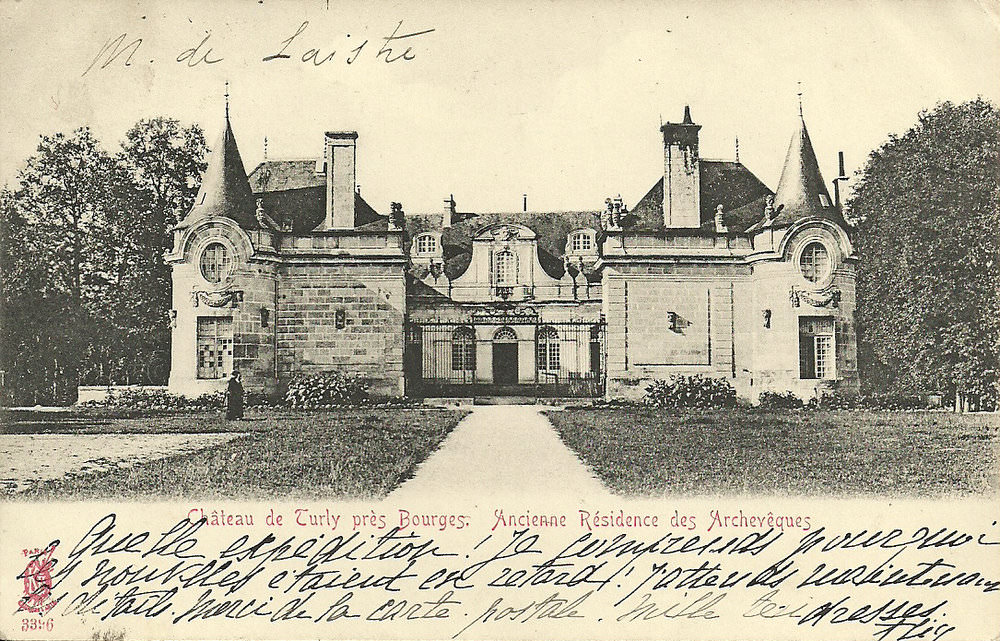 M. de Laistre
Château de Turly près Bourges. Ancienne Résidence des Archevêques
Quelle expédition! Je comprends pourquoi
les nouvelles étaient en retard! J'attends maintenant
détails. Merci de la carte postale. Mille tendresses.
PARIS
3396